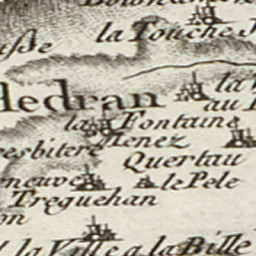 la Touche
ledran
la Fontaine
Menez
resbitere
Quertau
eneuve
le Pele
Treguehan
on
la Ville a la Bille